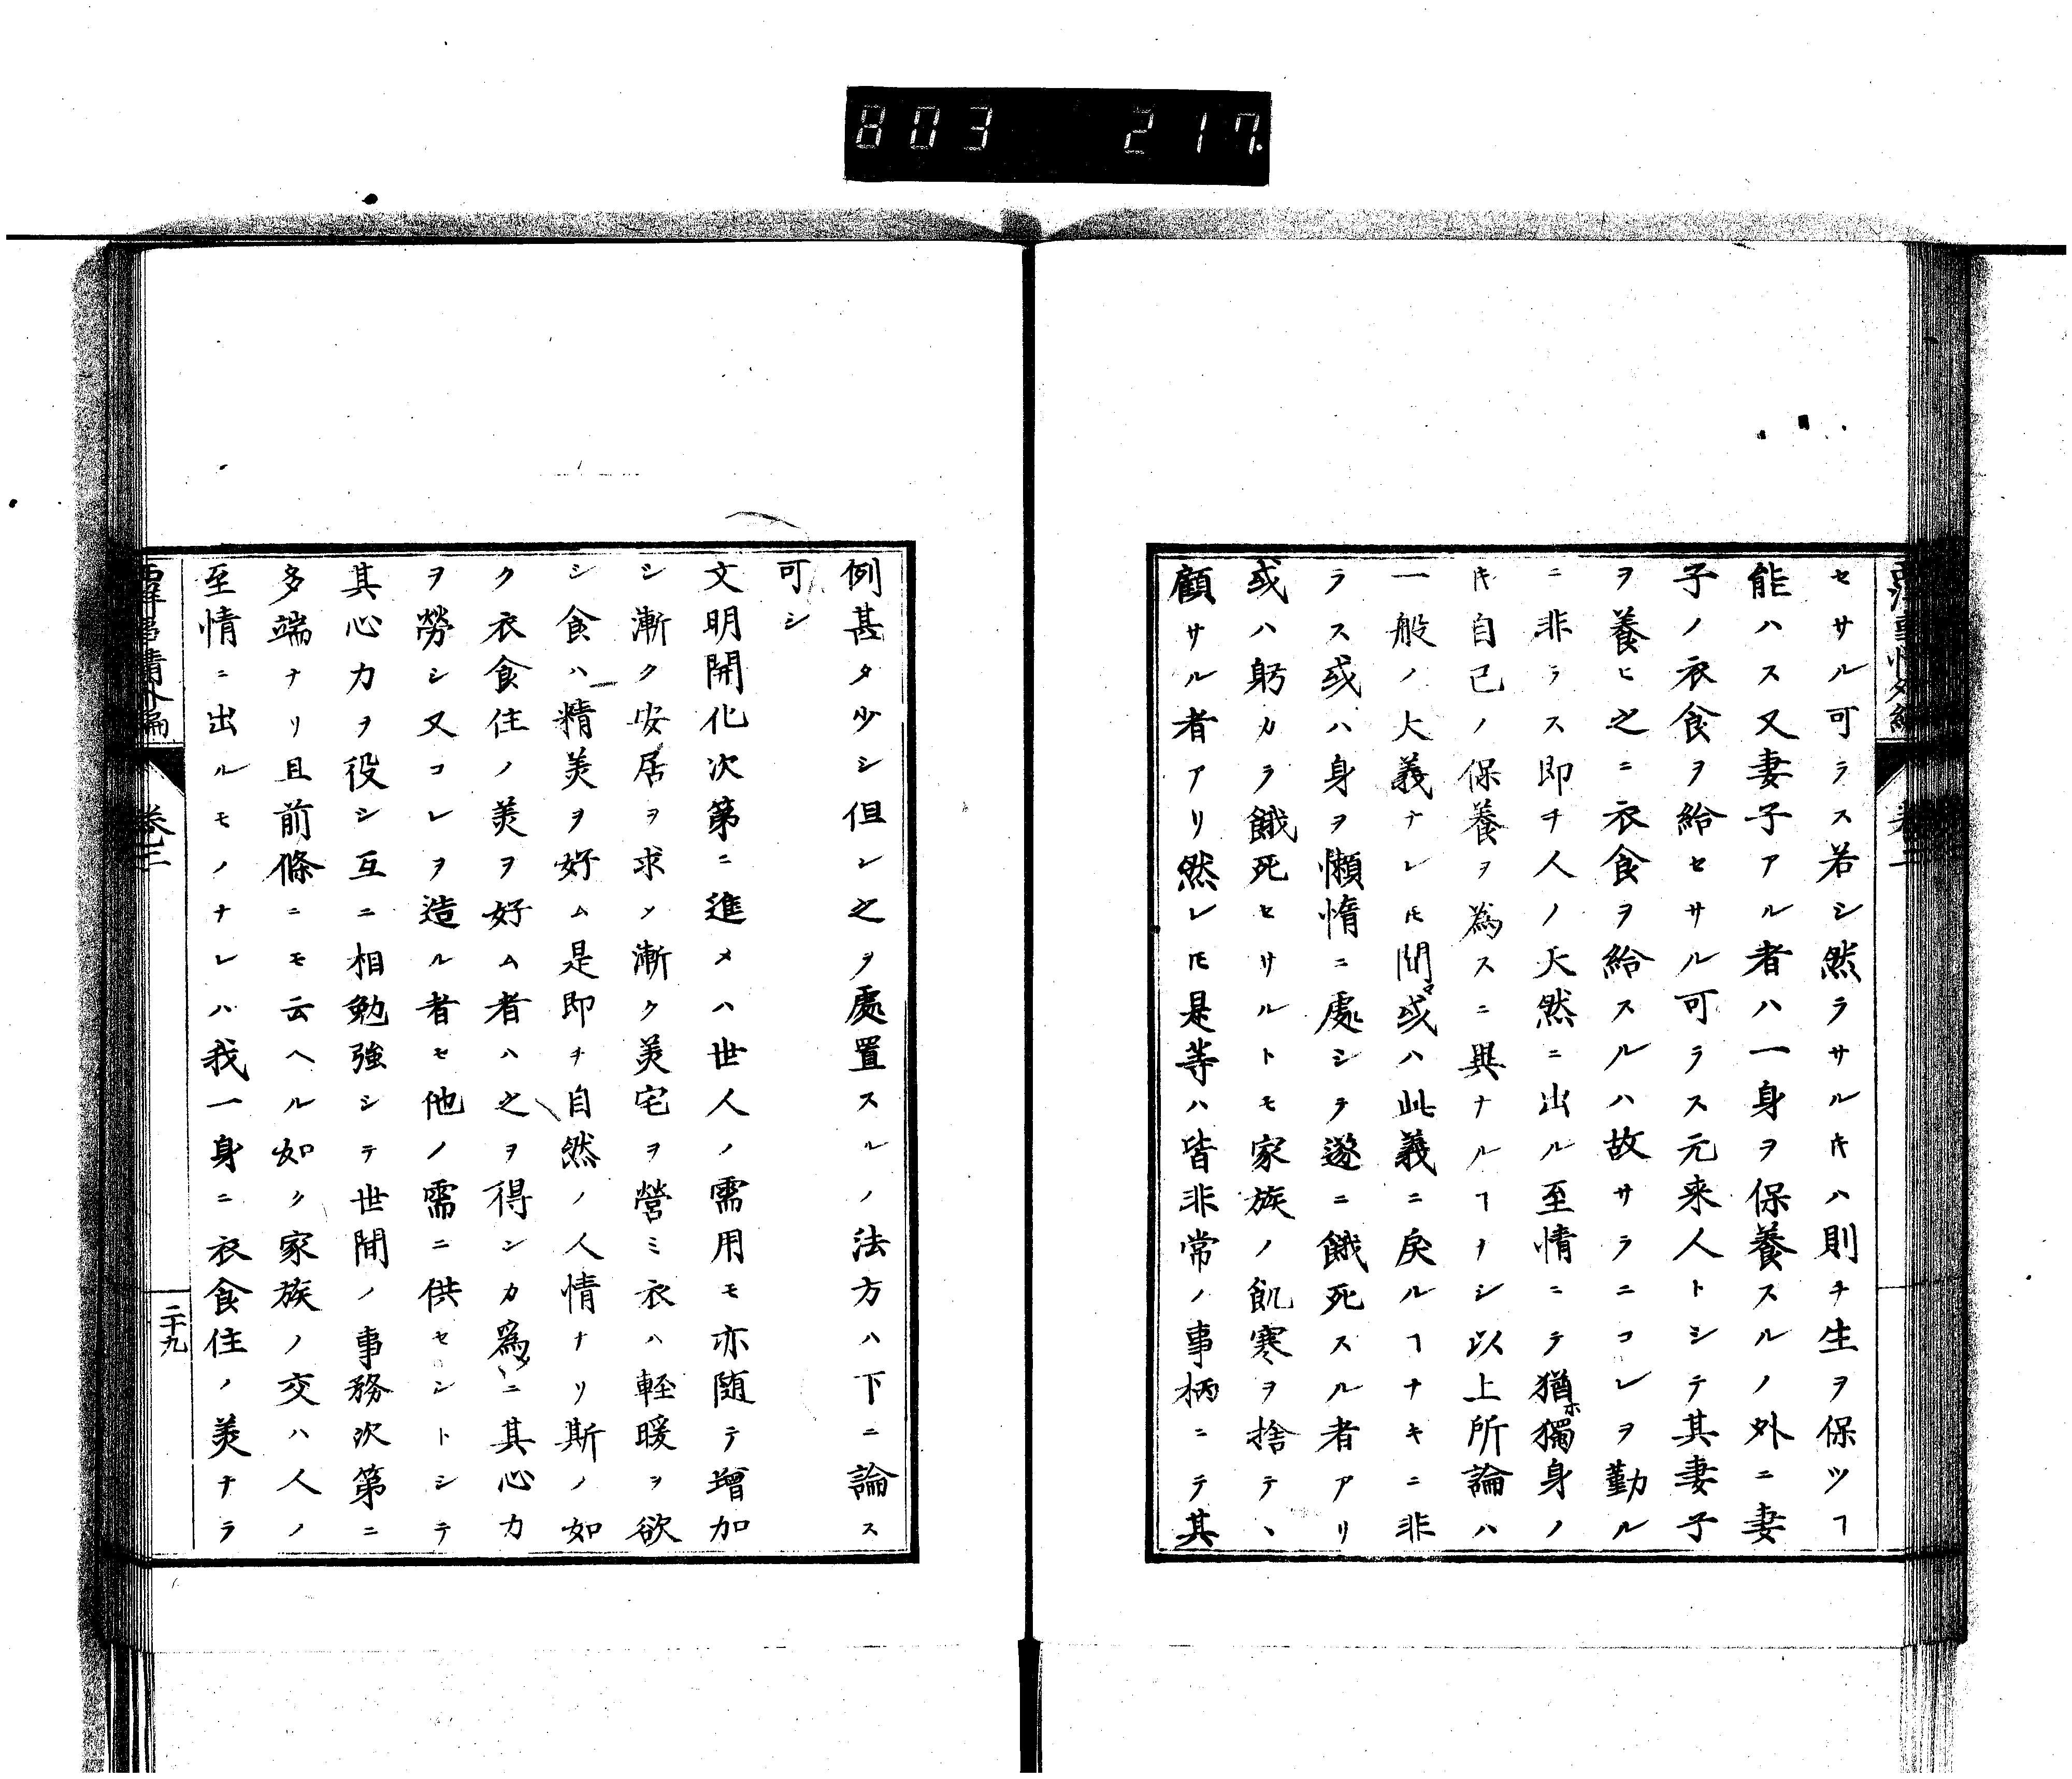 803 217.
西洋事情外編
卷三
セサル可ラス若シ然ラサルキハ則チ生ヲ保ツヿ
能ハス又妻子アル者ハ一身ヲ保養スルノ外ニ妻
子ノ衣食ヲ給セサル可ラス元来人トシテ其妻子
ヲ養ヒ之ニ衣食ヲ給スルハ故サラニコレヲ勤ル
ニ非ラス即チ人ノ天然ニ出ル至情ニテ猶ホ獨身ノ
キ自己ノ保養ヲ為スニ異ナルヿナシ以上所論ハ
一般ノ大義ナレㄸ間々或ハ此義ニ戾ルヿナキニ非
ラス或ハ身ヲ懶惰ニ處シテ遂ニ餓死スル者アリ
或ハ躬カラ餓死セサルトモ家族ノ飢寒ヲ捨テヽ
顧サル者アリ然レㄸ是等ハ皆非常ノ事柄ニテ其
例甚タ少シ但シ之ヲ處置スルノ法方ハ下ニ論ス
可シ
文明開化次第ニ進メハ世人ノ需用モ亦随テ增加
シ漸ク安居ヲ求メ漸ク美宅ヲ營ミ衣ハ軽暖ヲ欲
シ食ハ精美ヲ好ム是即チ自然ノ人情ナリ斯ノ如
ク衣食住ノ美ヲ好ム者ハ之ヲ得ンカ為メニ其心力
ヲ勞シ又コレヲ造ル者モ他ノ需ニ供セントシテ
其心力ヲ役シ互ニ相勉強シテ世間ノ事務次第ニ
多端ナリ且前條ニモ云ヘル如ク家族ノ交ハ人ノ
至情ニ出ルモノナレハ我一身ニ衣食住ノ美ナラ
西洋事情外編
卷三
二十九